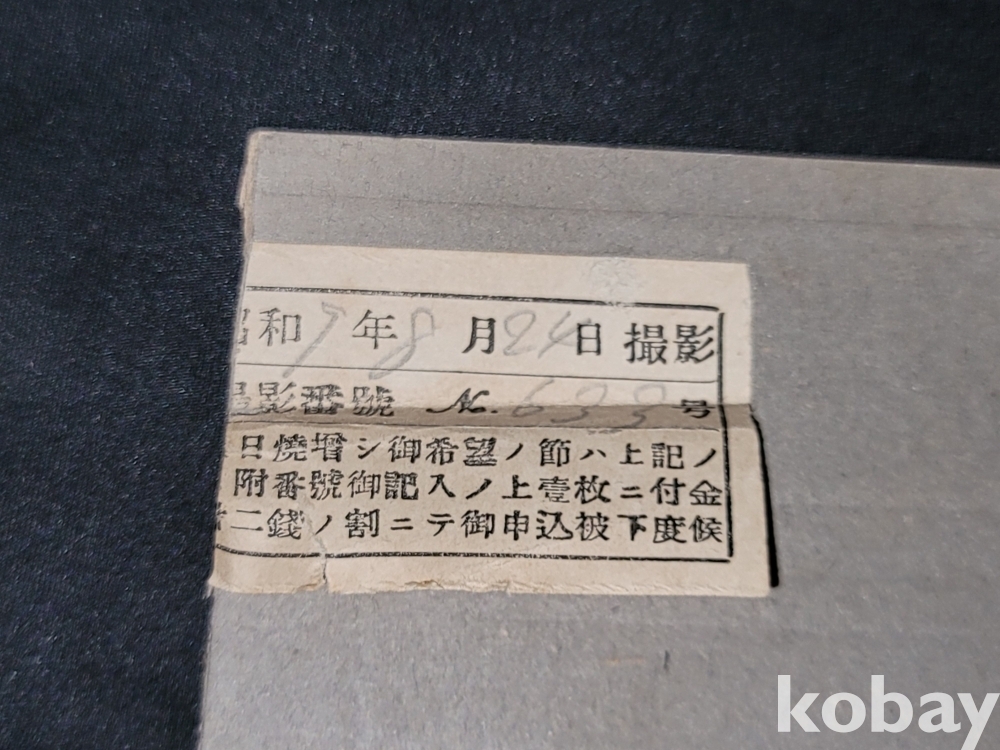 昭和7年8月24日撮影
撮影番號 No. 633号
日燒增シ御希望ノ節ハ上記ノ
附番號御記入ノ上壹枚ニ付金
二錢ノ割ニテ御申込被下度候
kobay